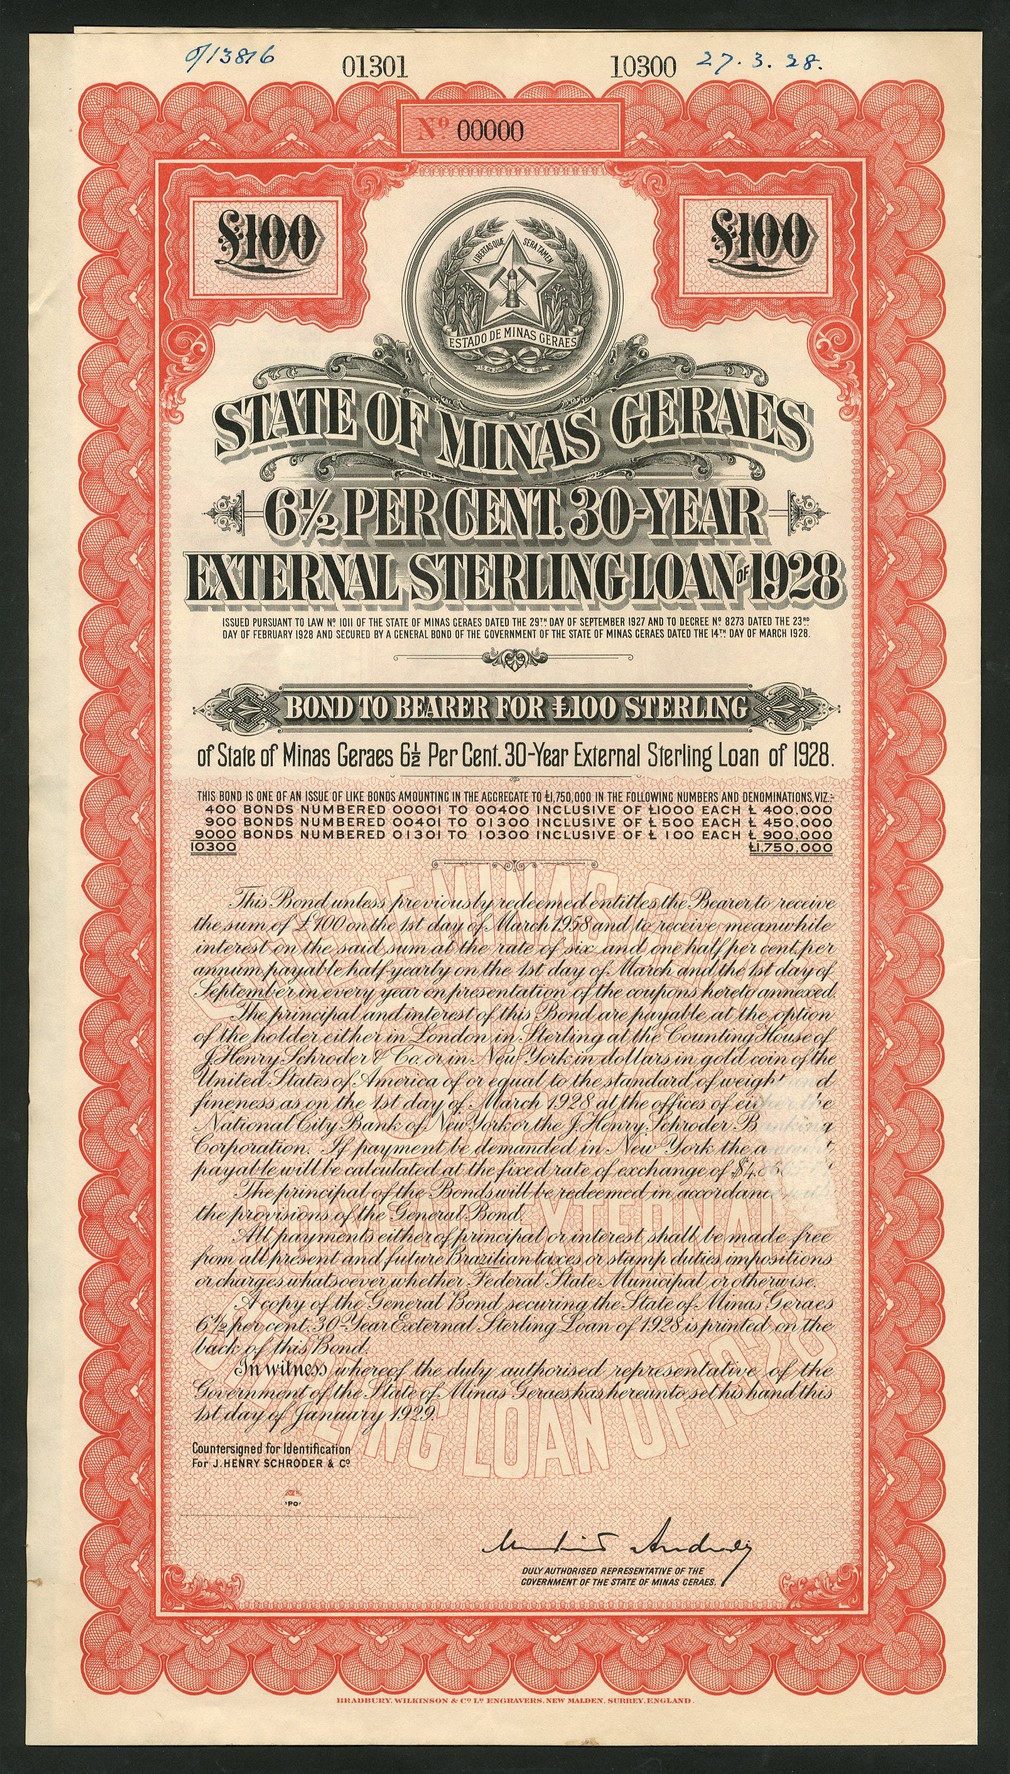 0/13816 01301 10300 27.3.28.
Nº 00000
£100 £100
LIBERTAS QUE SERA TAMEN
ESTADO DE MINAS GERAES
STATE OF MINAS GERAES
6½ PER CENT. 30-YEAR
EXTERNAL STERLING LOAN OF 1928
ISSUED PURSUANT TO LAW Nº 1011 OF THE STATE OF MINAS GERAES DATED THE 29TH DAY OF SEPTEMBER 1927 AND TO DECREE Nº 8273 DATED THE 23RD
DAY OF FEBRUARY 1928 AND SECURED BY A GENERAL BOND OF THE GOVERNMENT OF THE STATE OF MINAS GERAES DATED THE 14TH DAY OF MARCH 1928.
BOND TO BEARER FOR £100 STERLING
of State of Minas Geraes 6½ Per Cent. 30-Year External Sterling Loan of 1928.
THIS BOND IS ONE OF AN ISSUE OF LIKE BONDS AMOUNTING IN THE AGGREGATE TO £1,750,000 IN THE FOLLOWING NUMBERS AND DENOMINATIONS, VIZ:-
400 BONDS NUMBERED 00001 TO 00400 INCLUSIVE OF £1000 EACH £ 400.000
900 BONDS NUMBERED 00401 TO 01300 INCLUSIVE OF £ 500 EACH £ 450.000
9000 BONDS NUMBERED 01301 TO 10300 INCLUSIVE OF £ 100 EACH £ 900.000
10300 £1.750.000
This Bond unless previously redeemed entitles the Bearer to receive
the sum of £100 on the 1st day of March 1958 and to receive meanwhile
interest on the said sum at the rate of six and one half per cent. per
annum payable half-yearly on the 1st day of March and the 1st day of
September in every year on presentation of the coupons hereto annexed.
The principal and interest of this Bond are payable at the option
of the holder either in London in Sterling at the Counting House of
J. Henry Schroder & Co. or in New York in dollars in gold coin of the
United States of America of or equal to the standard of weight and
fineness as on the 1st day of March 1928 at the offices of either the
National City Bank of New York or the J. Henry Schroder Banking
Corporation. If payment be demanded in New York the amount
payable will be calculated at the fixed rate of exchange of
The principal of the Bonds will be redeemed in accordance with
the provisions of the General Bond.
All payments either of principal or interest shall be made free
from all present and future Brazilian taxes or stamp duties, impositions
or charges whatsoever whether Federal State Municipal, or otherwise.
A copy of the General Bond securing the State of Minas Geraes
6½ per cent. 30-Year External Sterling Loan of 1928 is printed on the
back of this Bond.
In witness whereof the duly authorised representative of the
Government of the State of Minas Geraes has hereunto set his hand this
1st day of January 1929.
Countersigned for Identification
For J. HENRY SCHRODER & Cº
DULY AUTHORISED REPRESENTATIVE OF THE
GOVERNMENT OF THE STATE OF MINAS GERAES.
BRADBURY, WILKINSON & Cº Lᴰ ENGRAVERS, NEW MALDEN, SURREY, ENGLAND.